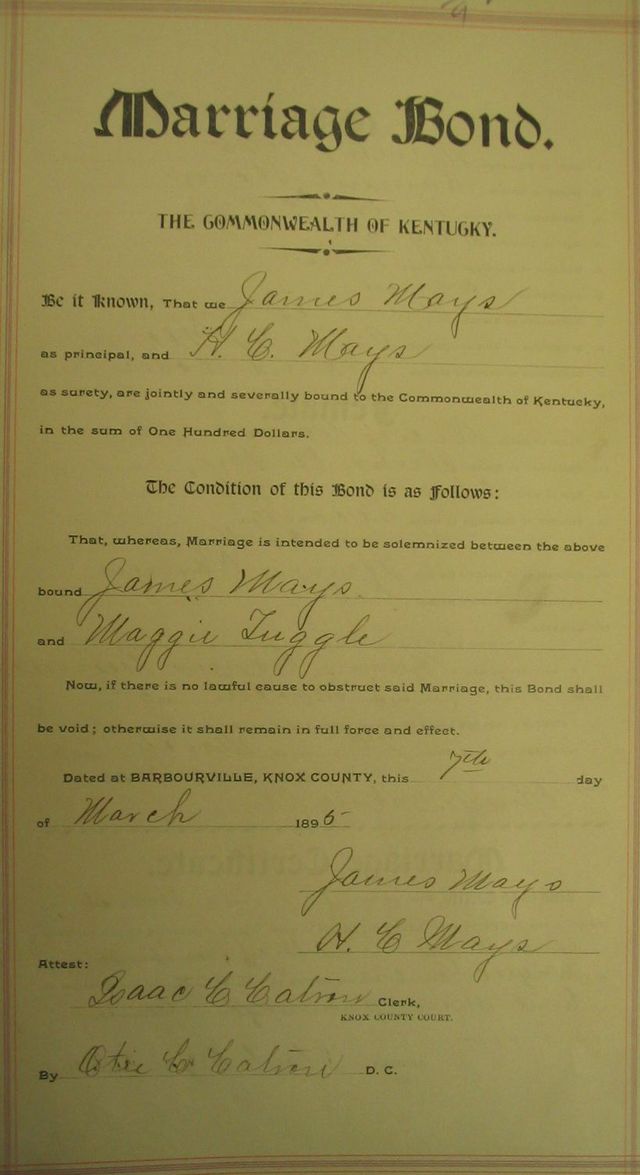 Marriage Bond.
THE COMMONWEALTH OF KENTUCKY.
Be it Known, That we James Mays
as principal, and H. C. Mays
as surety, are jointly and severally bound to the Commonwealth of Kentucky,
in the sum of One Hundred Dollars.
The Condition of this Bond is as Follows:
That, whereas, Marriage is intended to be solemnized between the above
bound James Mays
and Maggie Tuggle
Now, if there is no lawful cause to obstruct said Marriage, this Bond shall
be void; otherwise it shall remain in full force and effect.
Dated at BARBOURVILLE, KNOX COUNTY, this 7th day
of March 1895
James Mays
H. C Mays
Attest:
Isaac C Catron Clerk,
KNOX COUNTY COURT.
By C Catron D. C.